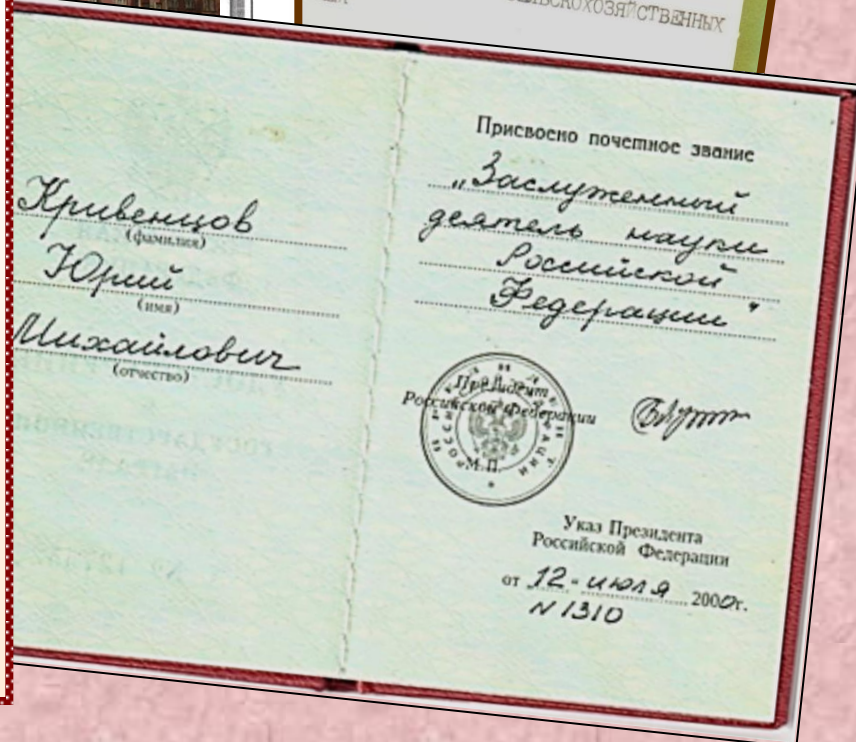 ЛЬСКОХОЗЯЙСТВЕННЫХ
Кривенцов
(фамилия)
Юрий
(имя)
Михайлович
(отчество)
Присвоено почетное звание
„Заслуженный
деятель науки
Российской
Федерации"
Президент
Российской Федерации
М.П.
Указ Президента
Российской Федерации
от 12 - июля 2000г.
N 1310